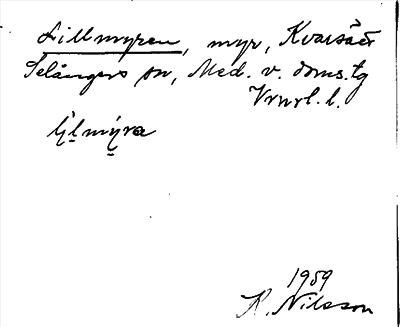 Lillmyren, myr, Kvarsätt
Selångers sn, Med. v. doms. tg
Vrnrl. l.
lìl̥mýra
1959
K. Nilsson